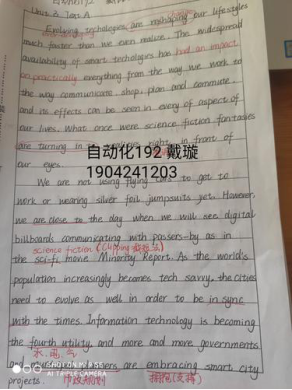 Unit 3 Text A
Evolving technologies are reshaping our lifestyles
much faster than we even realize. The widespread
availability of smart technologies has had an impact
on practically everything from the way we work to
the way communicate shop, plan and commute
and its effects can be seen in every of aspect of
our lives. What once were science fiction fantasies
are turning in front of
our eyes.
自动化192 戴璇
1904241203
We are not using flying cars to get to
work or wearing silver foil jumpsuits yet. However,
we are close to the day when we will see digital
billboards communicating with passers-by as in
science fiction (clipping
the sci-fi movie Minority Report. As the world's
population increasingly becomes tech savvy, the cities
need to evolve as well in order to be in sync
with the times. Information technology is becoming
the fourth utility, and more and more governments
水、电、气
and are embracing smart city
projects. 市政规划 拥抱(支持)
AI TRIPLE CAMERA